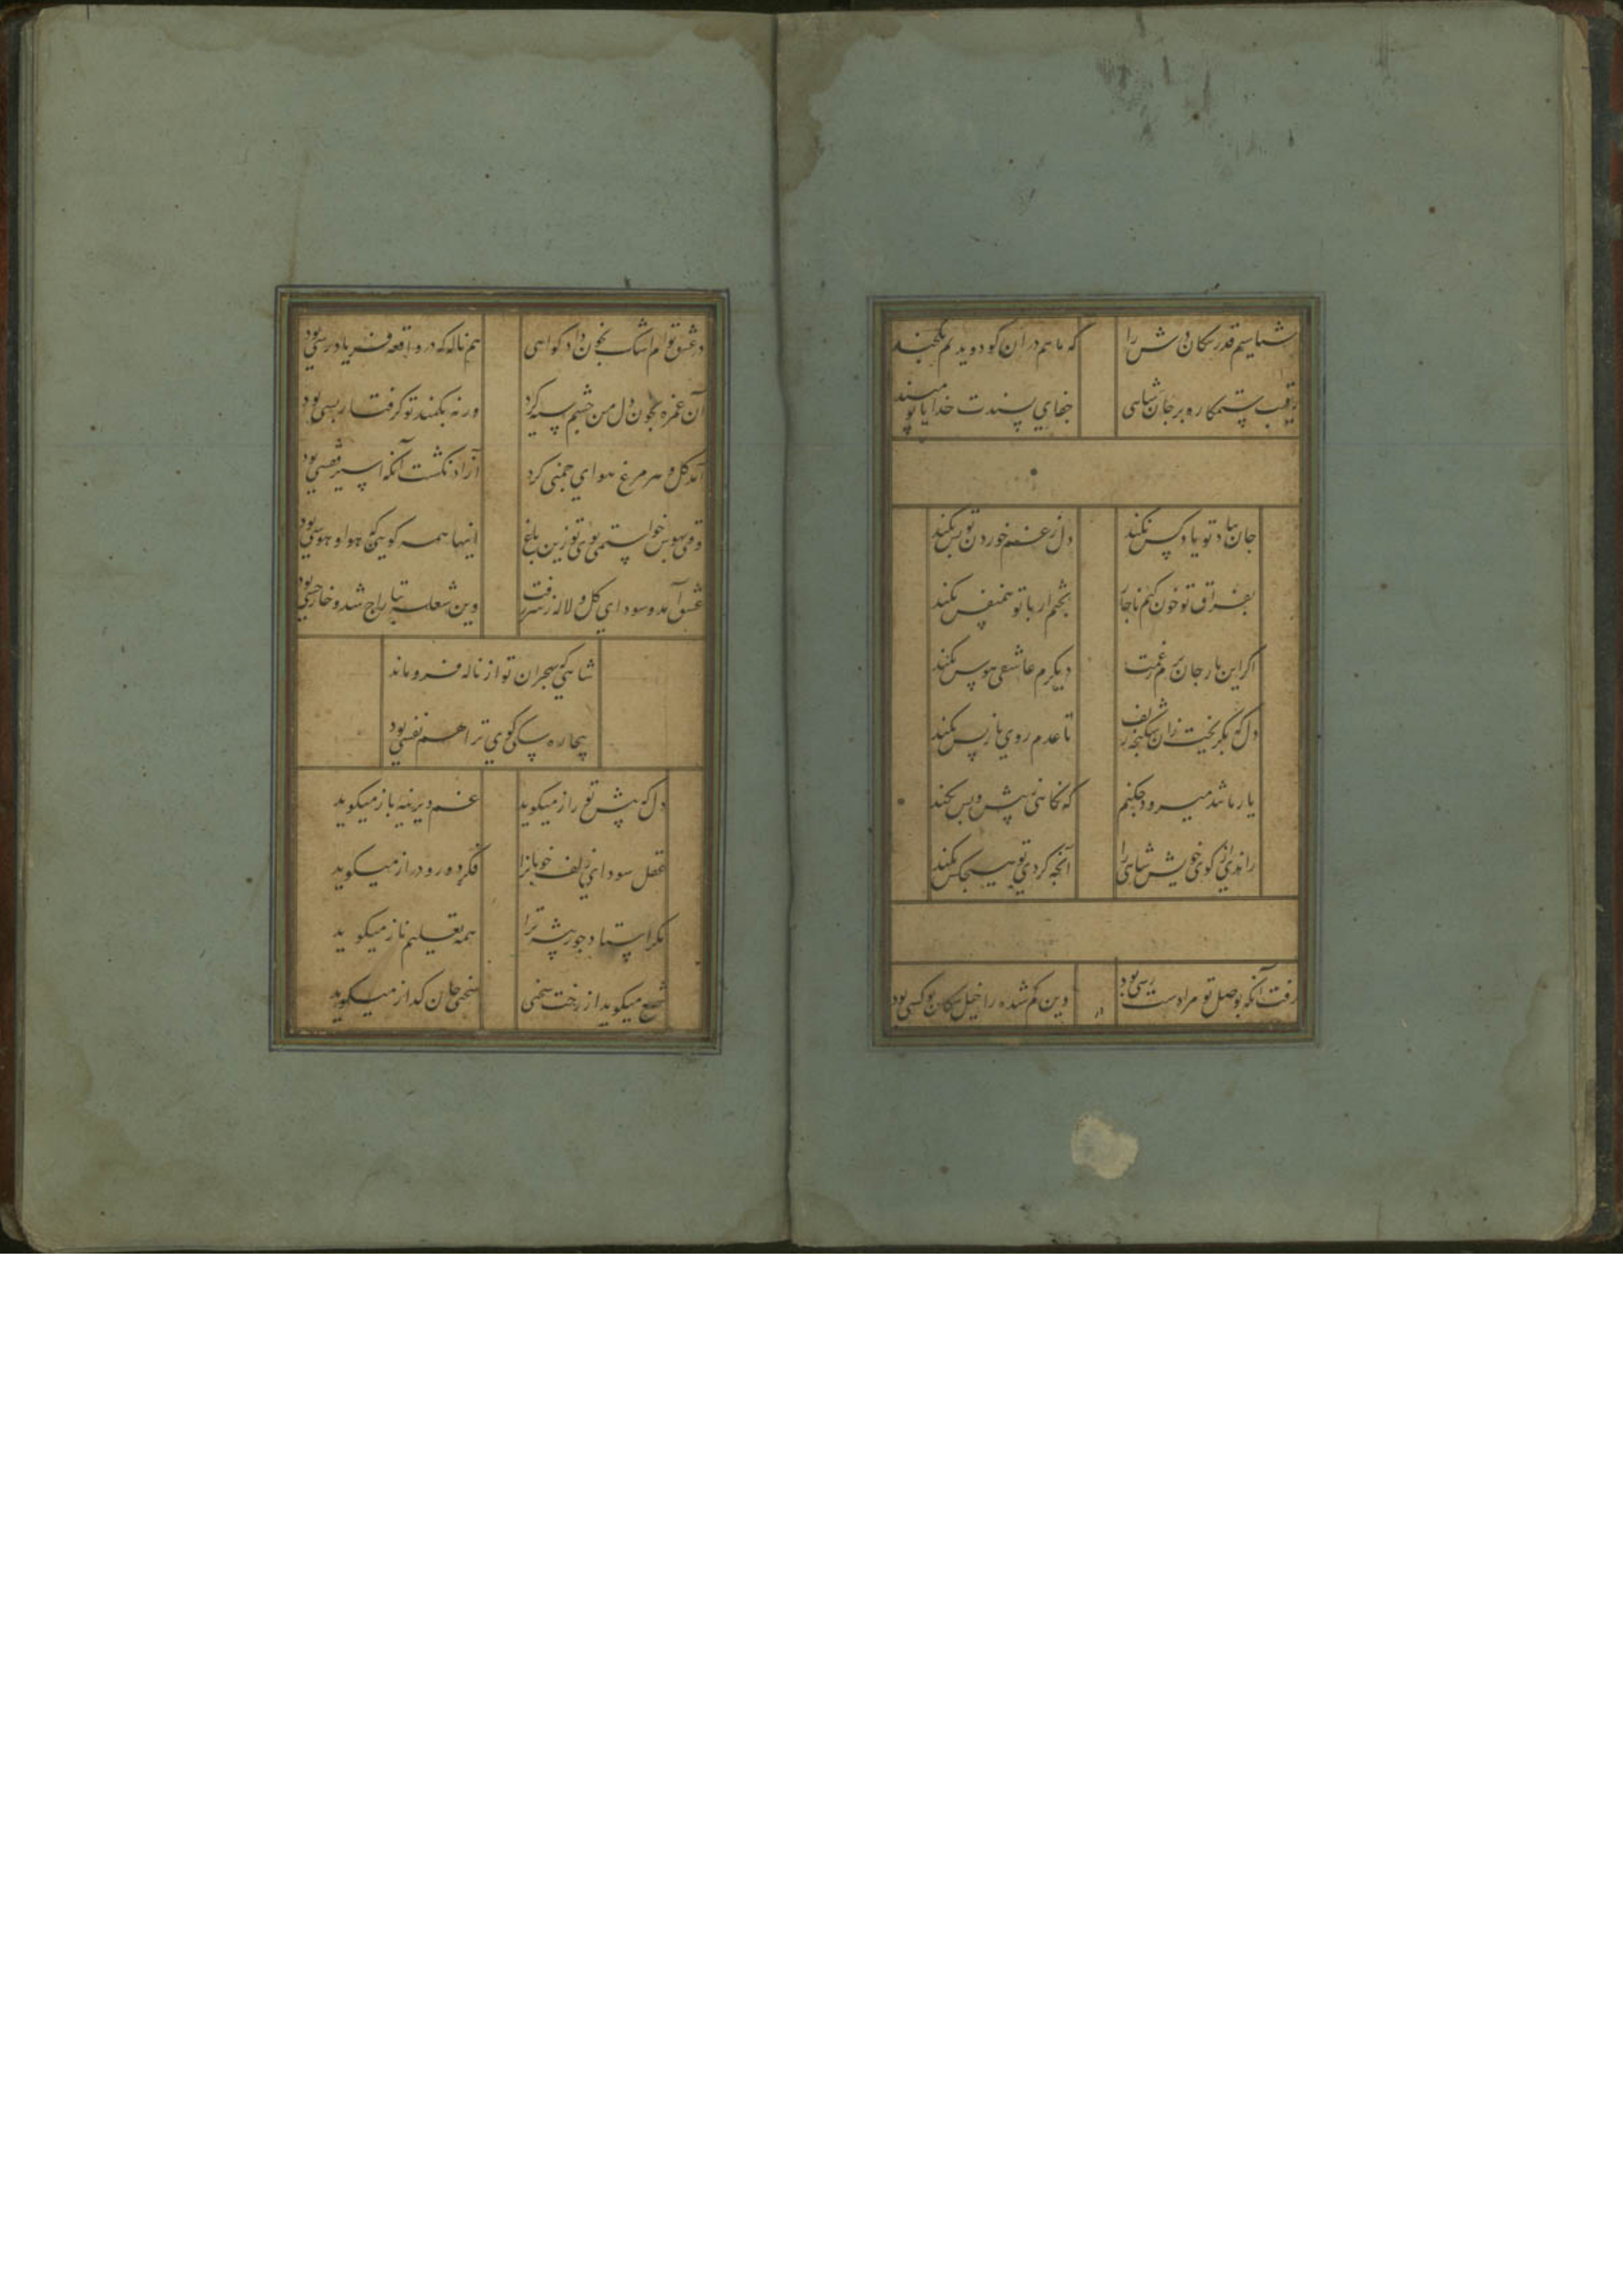 شناسیم قدر سکان درش را که ما هم در آن کو دویدیم یکچند
رقیب ستمکار و بر جان شاهی جفای پسندت خدایا تو مپسند
جان بیاد تو یاد کس نکند دل ز غم خوردن تو بس نکند
بفراق تو خون کنم ناچار بختم ار با تو همنفس نکند
اگر این بار جان برم ز غمت دیگرم عاشقی هوس نکند
دل که بگریخت زان شکنجه زلف تا عدم روی باز پس نکند
یار ما تند میرود چکنم که نگاهی ز پیش و پس نکند
راندی از کوی خویش شاهی را آنچه کردی تو هیچکس نکند
رفت آنکه بوصل تو مرا دست رسی بود وین گم شده را خیل سکان تو کسی بود
در عشق توام اشک بخون داد کواهی هم ناله که در واقعه فریاد رسی بود
آن غمزه بخون دل من چشم سیه کرد ورنه بکمند تو گرفتار بسی بود
آمد گل و هر مرغ هوای چمنی کرد آزاد نگشت آنکه اسیر قفسی بود
وقتی بهوس خواستمی بوی تو زین باغ اینها همه گویی که هوا و هوسی بود
عشق آمد و سودای گل و لاله ز سر رفت وین شعله بتاراج شد و خار و خسی بود
شاهی که بهجران تو از ناله فرو ماند
بیچاره سک کوی ترا هم نفسی بود
دل که پیش تو راز میگوید غم دیرینه باز میگوید
عقل سودای زلف خوبانرا فکر دور و دراز میگوید
مگر استاد جور پیشه ترا همه تعلیم ناز میگوید
شمع میگوید از رخت سخنی سخنی جان گداز میگوید